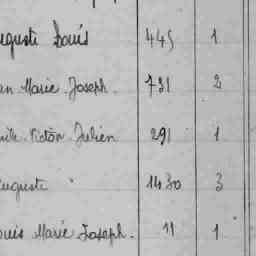 uguste Louis 445 1
an Marie Joseph. 731 2
mile Victor Julien 291 1
uguste 1430 3
ouis Marie Joseph. 11 1